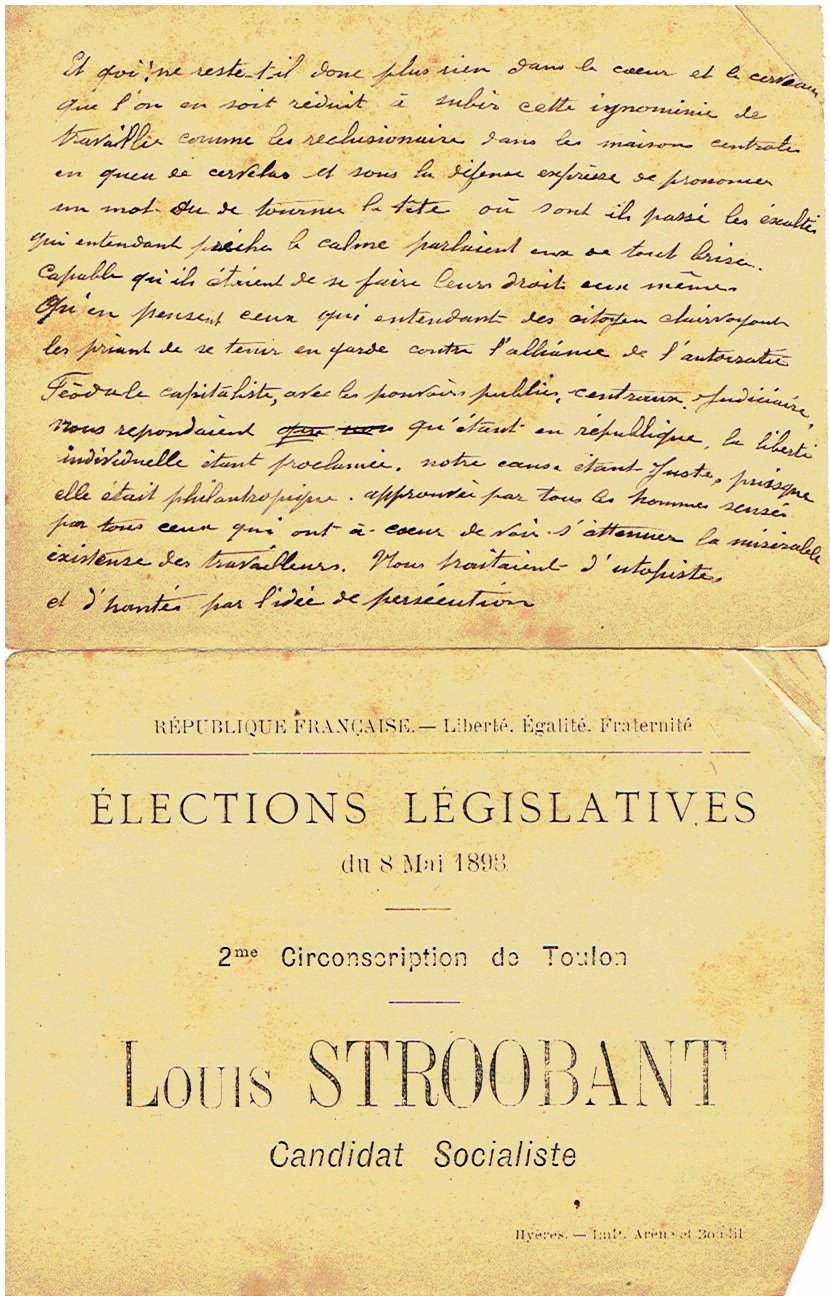 Et quoi! ne reste-t-il donc plus rien dans le cœur et le cerveau
que l'on en soit réduit à subir cette ignominie de
travailler comme les reclusionaire dans les maisons centrales
en queu de cervelas et sous la défense expresse de prononcer
un mot ou de tourner la tête où sont ils passé les éxaltés
qui entendant prêcher le calme parlaient eux de tout briser.
Capable qu'ils étaient de se faire leurs droits eux mêmes
Qu'en pensent ceux qui entendant des citoyen clairvoyants
les priant de se tenir en garde contre l'alliance de l'autocratie
Féodale capitaliste, avec les pouvoirs publics, centraux. Judiciaire,
nous repondaient qu'étant en république, la liberté
individuelle étant proclamée. notre cause étant Juste, puisque
elle était philantropique. approuvée par tous les hommes sensés
par tous ceux qui ont à cœur de voir s'attenuer la misérable
éxistense des travailleurs. Nous traitaient d'utopistes
et d'hantés par l'idée de persécution
RÉPUBLIQUE FRANÇAISE. — Liberté, Égalité, Fraternité
ÉLECTIONS LÉGISLATIVES
du 8 Mai 1898
2me Circonscription de Toulon
Louis STROOBANT
Candidat Socialiste
Hyères. — Impr. Arène et